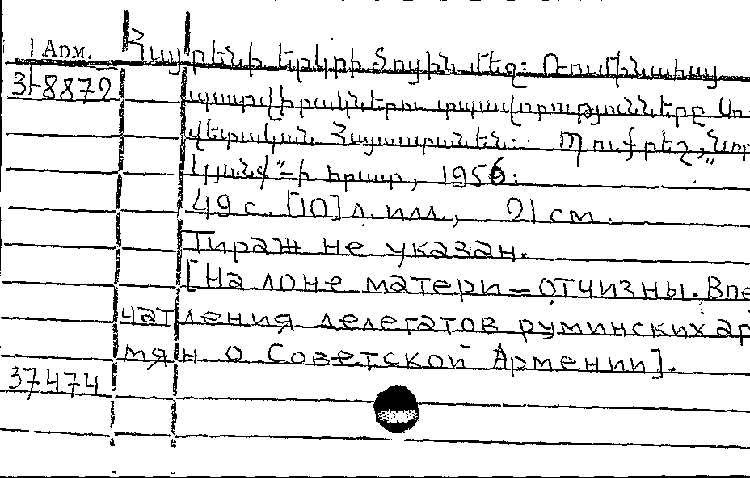 Арм. Հայրենի երկրի ծոցին մեջ: Ռումինահայ
3-8872 պատվիրակներու տպավորությունները Սո
վետական Հայաստանեն: Բուքրեշ, „Նոր
Կյանք"-ի հրատ, 1956:
49 с. [10] л. илл., 21 см.
Тираж не указан.
[На лоне матери=отчизны. Впе
чатления делегатов румынских ар
мян о Советской Армении].
37474